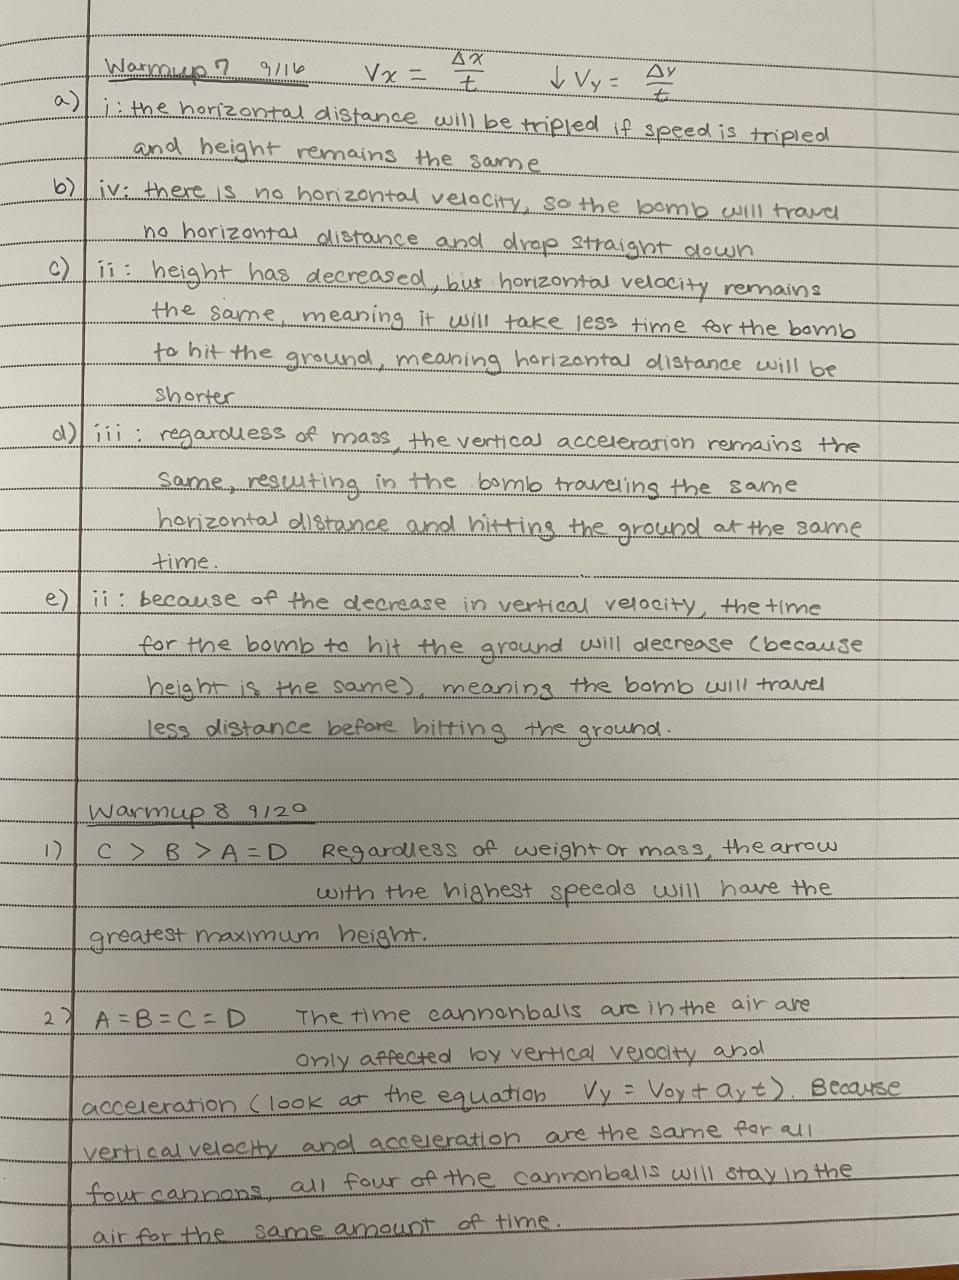 Warmup 7 9/16 Vx = Δx/t ↓ Vy = Δy/t
a) i: the horizontal distance will be tripled if speed is tripled
and height remains the same
b) iv: there is no horizontal velocity, so the bomb will travel
no horizontal distance and drop straight down
c) ii: height has decreased, but horizontal velocity remains
the same, meaning it will take less time for the bomb
to hit the ground, meaning horizontal distance will be
shorter
d) iii: regardless of mass, the vertical acceleration remains the
same, resulting in the bomb traveling the same
horizontal distance and hitting the ground at the same
time.
e) ii: because of the decrease in vertical velocity, the time
for the bomb to hit the ground will decrease (because
height is the same), meaning the bomb will travel
less distance before hitting the ground.
Warmup 8 9/20
1) C > B > A = D Regardless of weight or mass, the arrow
with the highest speeds will have the
greatest maximum height.
2) A = B = C = D The time cannonballs are in the air are
only affected by vertical velocity and
acceleration (look at the equation Vy = Voy + ayt). Because
vertical velocity and acceleration are the same for all
four cannons, all four of the cannonballs will stay in the
air for the same amount of time.